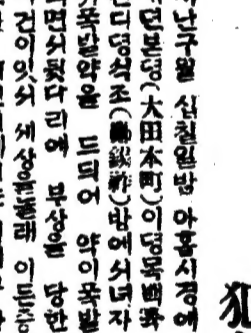 난구월 십칠일밤 아홉시경에
뎐본뎡(大田本町)이뎡목
디뎡석조( )방에서녀자
폭발약을 드듸어 약이폭발
면서뒷다리에 부상을 당한
건이잇서 세상을놀래 이든중